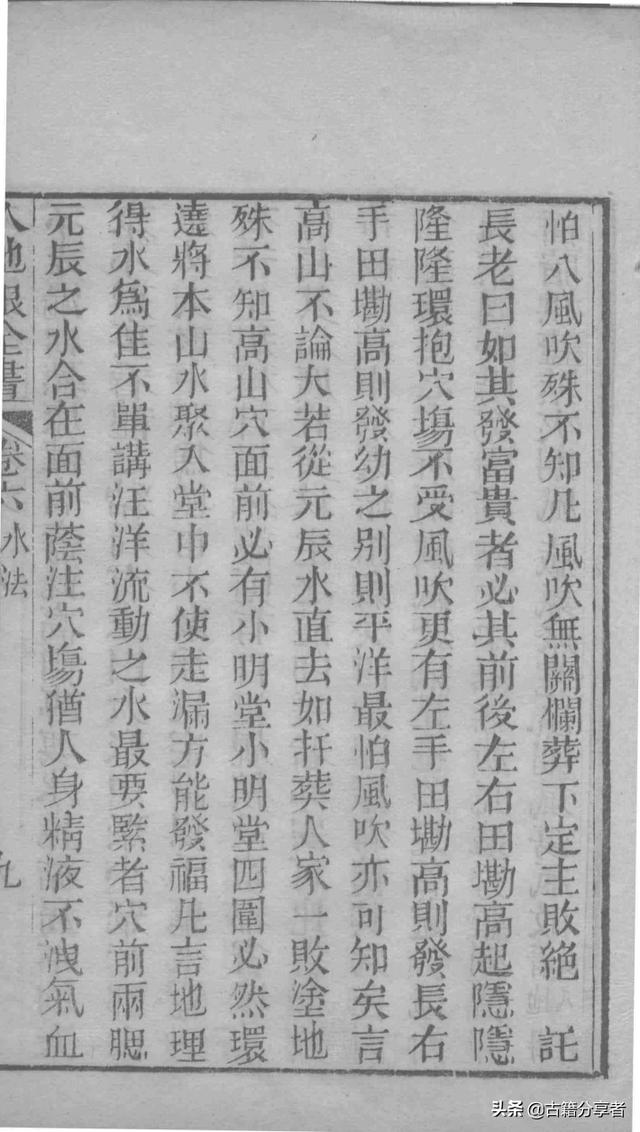 怕八風吹殊不知凢風吹無關欄葬下定主敗絕　託
長老曰如其發富貴者必其前後左右田墈高起隱隱
隆隆環抱穴塲不受風吹更有左手田墈高則發長右
手田墈高則發幼之别則平洋最怕風吹亦可知矣言
高山不論大若從元辰水直去如扦葬人家一敗塗地
殊不知高山穴面前必有小明堂小明堂四圍必然環
遶將本山水聚入堂中不使走漏方能發福凢言地理
得水爲佳不單講汪洋流動之水最要緊者穴前兩腮
元辰之水合在面前蔭注穴塲猶人身精液不洩氣血
地眼全書 卷六 水法 九
头条 @古籍分享者